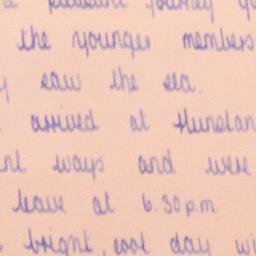 a pleasant journey
the younger members
saw the sea.
arrived at Hunstan
ways and were
leave at 6.30 p.m.
bright, cool day wi